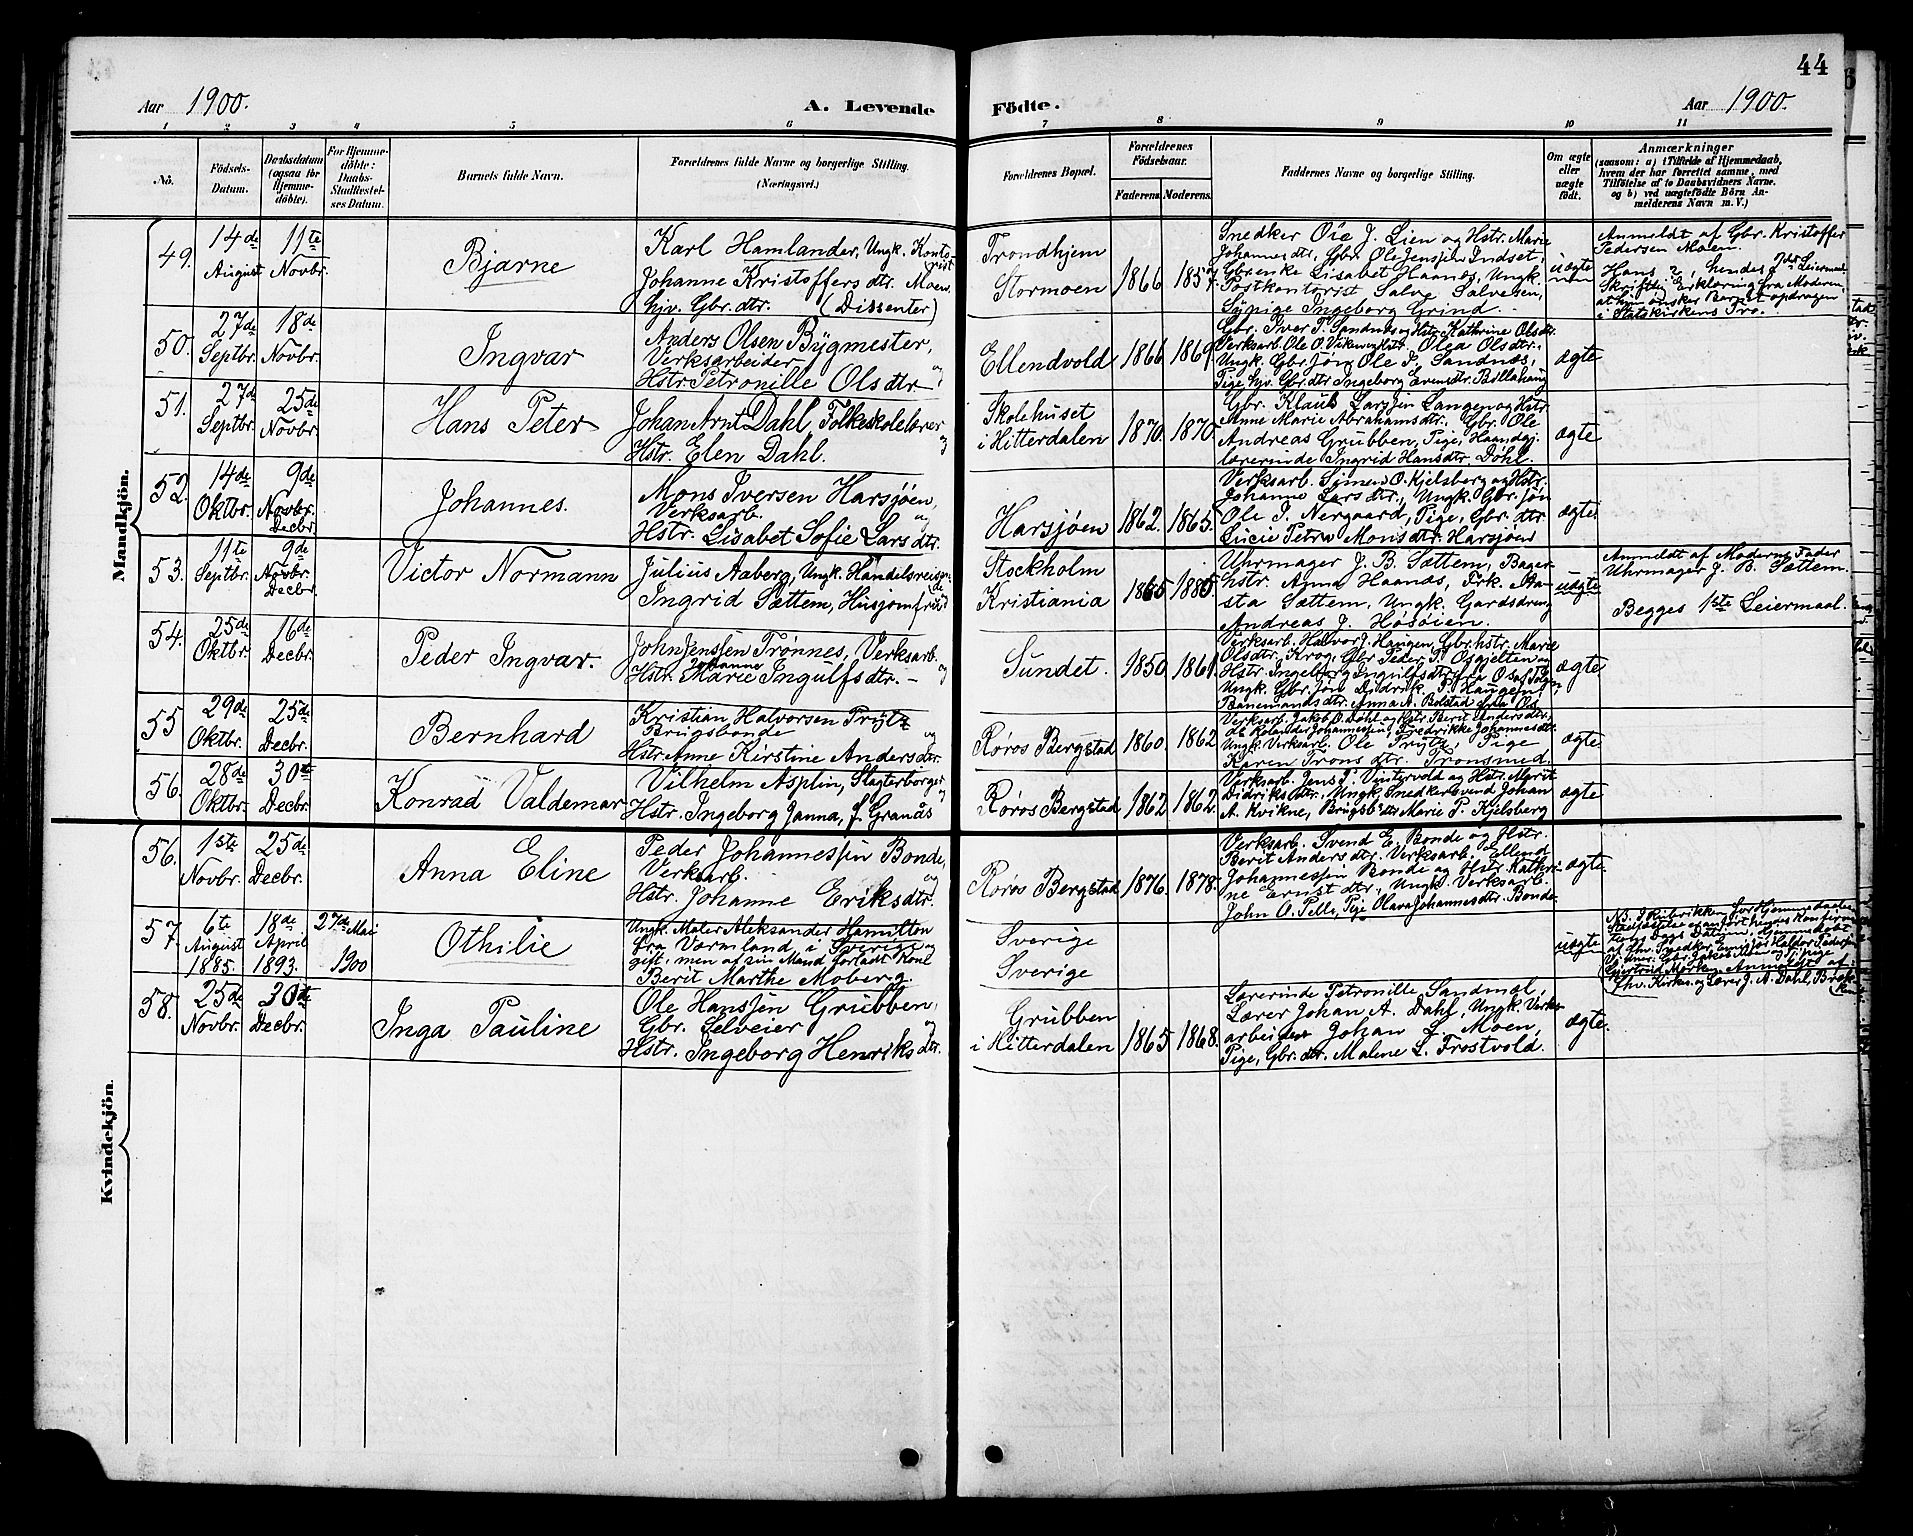 44
Aar 1900.
A. Levende
Födte.
Aar 1900.
1 2 3 4 5 6 7 8 9 10 11
No.
Födsels-
Datum.
Daabsdatum
(ogsaa for
Hjemme-
döbte).
For Hjemme-
döbte:
Daabs-
Stadfæstel-
ses Datum.
Barnets fulde Navn.
Forældrenes fulde Navne og borgerlige Stilling.
(Næringsvei.)
Forældrenes Bopæl.
Forældrenes
Födselsaar.
Faderens.
Moderens.
Faddernes Navne og borgerlige Stilling.
Om ægte
eller
uægte
födt.
Anmærkninger
(saasom: a) i Tilfælde af Hjemmedaab,
hvem der har forrettet samme, med
Tilföielse af to Daabsvidners Navne,
og b) ved uægtefödte Börn An-
melderens Navn m. V.)
Mandkjön.
49.
14de
August
11te
Novbr.
Bjarne
Karl Hamlander, Ungk. Konto-
rist
Johanne Kristoffersdtr. Moen
hjv. Gbr.dtr. (Dissenter)
Trondhjem
Stormoen
1866
1857.
Snedker Ole J. Lien og Hstr. Marie
Johannesdtr, Gbr. Ole Jensen Indset,
Gbrenke Lisabet Haanæs, Ungk.
Postkontorist Salve Salvesen,
Sypige Ingeborg Grind.
uægte
Anmeldt af Gbr. Kristoffer
Pedersen Moen.
Hans 2, hendes 7de Leiermaal
Skriftlig Erklæring fra Moderen,
at hun ønsker Barnet opdragen
i Statskirkens Tro.
50.
27de
Septbr.
18de
Novbr.
Ingvar
Anders Olsen Bygmester,
Verksarbeider og
Hstr. Petronille Olsdtr.
Ellendvold
1866
1869.
Gbr. Iver T. Sandnes og Hstr. Kathrine Olsdtr.
Verksarb. Ole O. Viken og Hstr. Olea Olsdtr.
Ungk. Gbr.søn Ole I. Sandnæs,
Pige hjv. Gbr.dtr Ingeborg Evensdtr. Billahaug
ægte
51.
27de
Septbr.
25de
Novbr.
Hans Peter
Johan Arnt Dahl, Folkeskolelærer og
Hstr. Elen Dahl.
Skolehuset
i Hitterdalen
1870.
1870.
Gbr. Klaus Larssen Langen og Hstr.
Anne Marie Abrahamsdtr. Gbr. Ole
Andreas Grubben, Pige, Haandgj.
lærerinde Ingrid Hansdtr. Døhl.
ægte
52.
14de
Oktbr.
9de
Novbr.
Decbr.
Johannes.
Mons Iversen Harsjøen,
Verksarb. og
Hstr. Lisabet Sofie Larsdtr.
Harsjøen
1862.
1865.
Verksarb. Simen O. Kjelsberg og Hstr.
Johanne Larsdtr., Ungk. Gbr.søn
Ole I. Nergaard, Pige, Gbr.dtr
Lucie Petra Monsdtr. Harsjøen
ægte
53.
11te
Septbr.
9de
Novbr.
Decbr.
Victor Normann
Julius Aaberg, Ungk. Handelsreisen-
de
Ingrid Sættem, Husjomfru
Stockholm
Kristiania
1865
1885
Uhrmager J. B. Sættem, Bager-
hstr. Anna Haanæs, Frk. Aa-
sta Sættem, Ungk. Gardsdreng
Andreas J. Høsøien.
uægte
Anmeldt af Moderens Fader
Uhrmager J. B. Sættem.
Begges 1ste Leiermaal.
54.
25de
Oktbr.
16de
Decbr.
Peder Ingvar.
John Jenssen Trønnes, Verksarb. og
Johanne
Hstr. Marie Ingulfsdtr.
Sundet.
1850.
1861.
Verksarb. Halvor J. Haugen, Gbr.hstr. Marie
Olsdtr. Krog, Gbr. Peder T. Osgjelten og
Hstr. Ingeborg Ingulfsdtr. fra Os
Ungk. Gbr.søn Didrik P. Haugen,
Banemandsdtr. Anna A. Bolstad
ægte
55
29de
Oktbr.
25de
Decbr.
Bernhard
Kristian Halvorsen Prytz
Brugsbonde og
Hstr. Anne Kirstine Andersdtr.
Røros Bergstad
1860.
1862
Verksarb. Jakob O. Døhl og Hstr. Berit Andersdtr.
Fredrikke Johannesdtr.
Ungk. Verksarb. Ole Prytz, Pige
Karen Tronsdtr. Tronsmed.
ægte
56.
28de
Oktbr.
30te
Decbr.
Konrad Valdemar
Vilhelm Asplin, Slagterborger og
Hstr. Ingeborg Janna, f. Grands
Røros Bergstad
1862
1862.
Verksarb. Jens P. Vintervold og Hstr. Marit
Didriksdtr., Ungk. Snedkersvend Johan
A. Kvikne, Brugsb.dtr Marie P. Kjelsberg
ægte
Kvindekjön.
56.
1ste
Novbr.
25de
Decbr.
Anna Eline
Peder Johannessen Bonde,
Verksarb. og
Hstr. Johanne Eriksdtr.
Røros Bergstad
1876.
1878.
Verksarb. Svend E. Bonde og Hstr.
Berit Andersdtr. Verksarb. Ellend
Johannessen Bonde og Hstr. Kathri-
ne Ernstdtr, Ungk. Verksarb.
John O. Pells, Pige Olava Johannesdtr. Bonde
ægte.
57.
6te
August
1885.
18de
April
1893.
27de Mai
1900
Othilie
Ungk. Maler Aleksander Hamilton
fra Varmland i Sverige og
gift, men af sin Mand forladt Kone
Berit Marthe Moberg.
Sverige
Sverige
uægte
af Thv. Snedker
Anmeldt af
Thv. Kirkes. og Lærer J. A. Dahl, Bræk-
ken.
58.
25de
Novbr.
30te
Decbr.
Inga Pauline
Ole Hanssen Grubben,
Gbr. Selveier og
Hstr. Ingeborg Henriksdtr.
Grubben
i Hitterdalen
1865
1868.
Lærerinde Petronille Sandmæl,
Lærer Johan A. Dahl, Ungk. Verks-
arbeider Johan L. Moen,
Pige, Gbr.dtr. Malene L. Frostvold.
ægte.